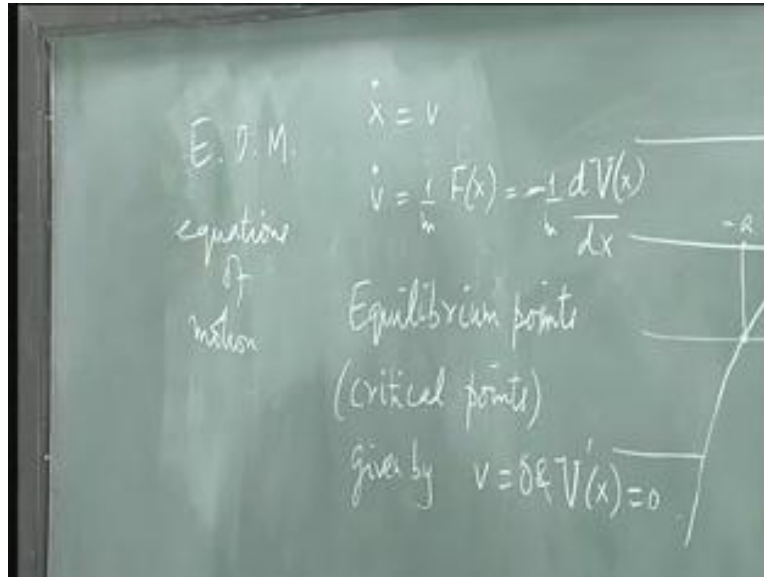 E.O.M.
equations
of
motion
ẋ = v
v̇ = 1/m F(x) = -1/m dV(x)/dx
Equilibrium points
(critical points)
given by v = 0 & V'(x) = 0
-a